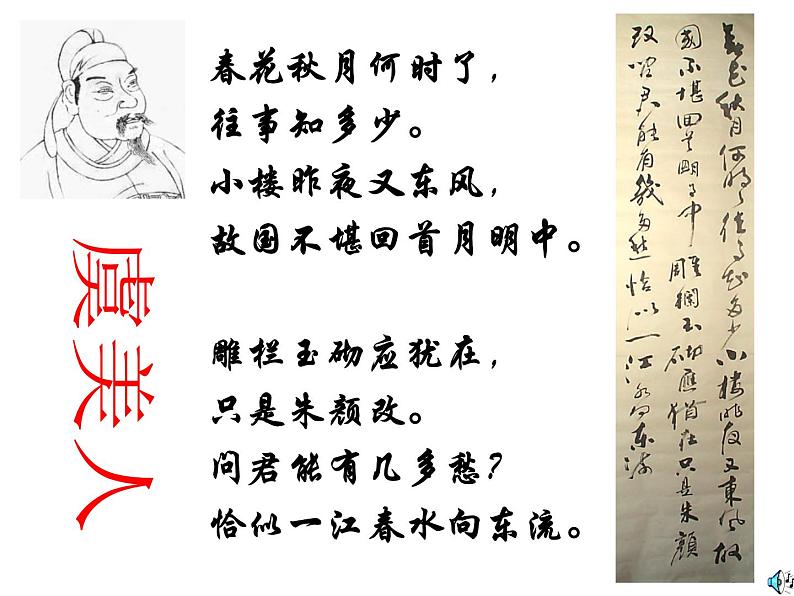 虞美人
春花秋月何时了，
往事知多少。
小楼昨夜又东风，
故国不堪回首月明中。
雕栏玉砌应犹在，
只是朱颜改。
问君能有几多愁？
恰似一江春水向东流。
春花秋月何时了往事知多少小楼昨夜又東风故
國不堪回首月明中雕欄玉砌應猶在只是朱顔
改问君能有幾多愁恰似一江春水向东流